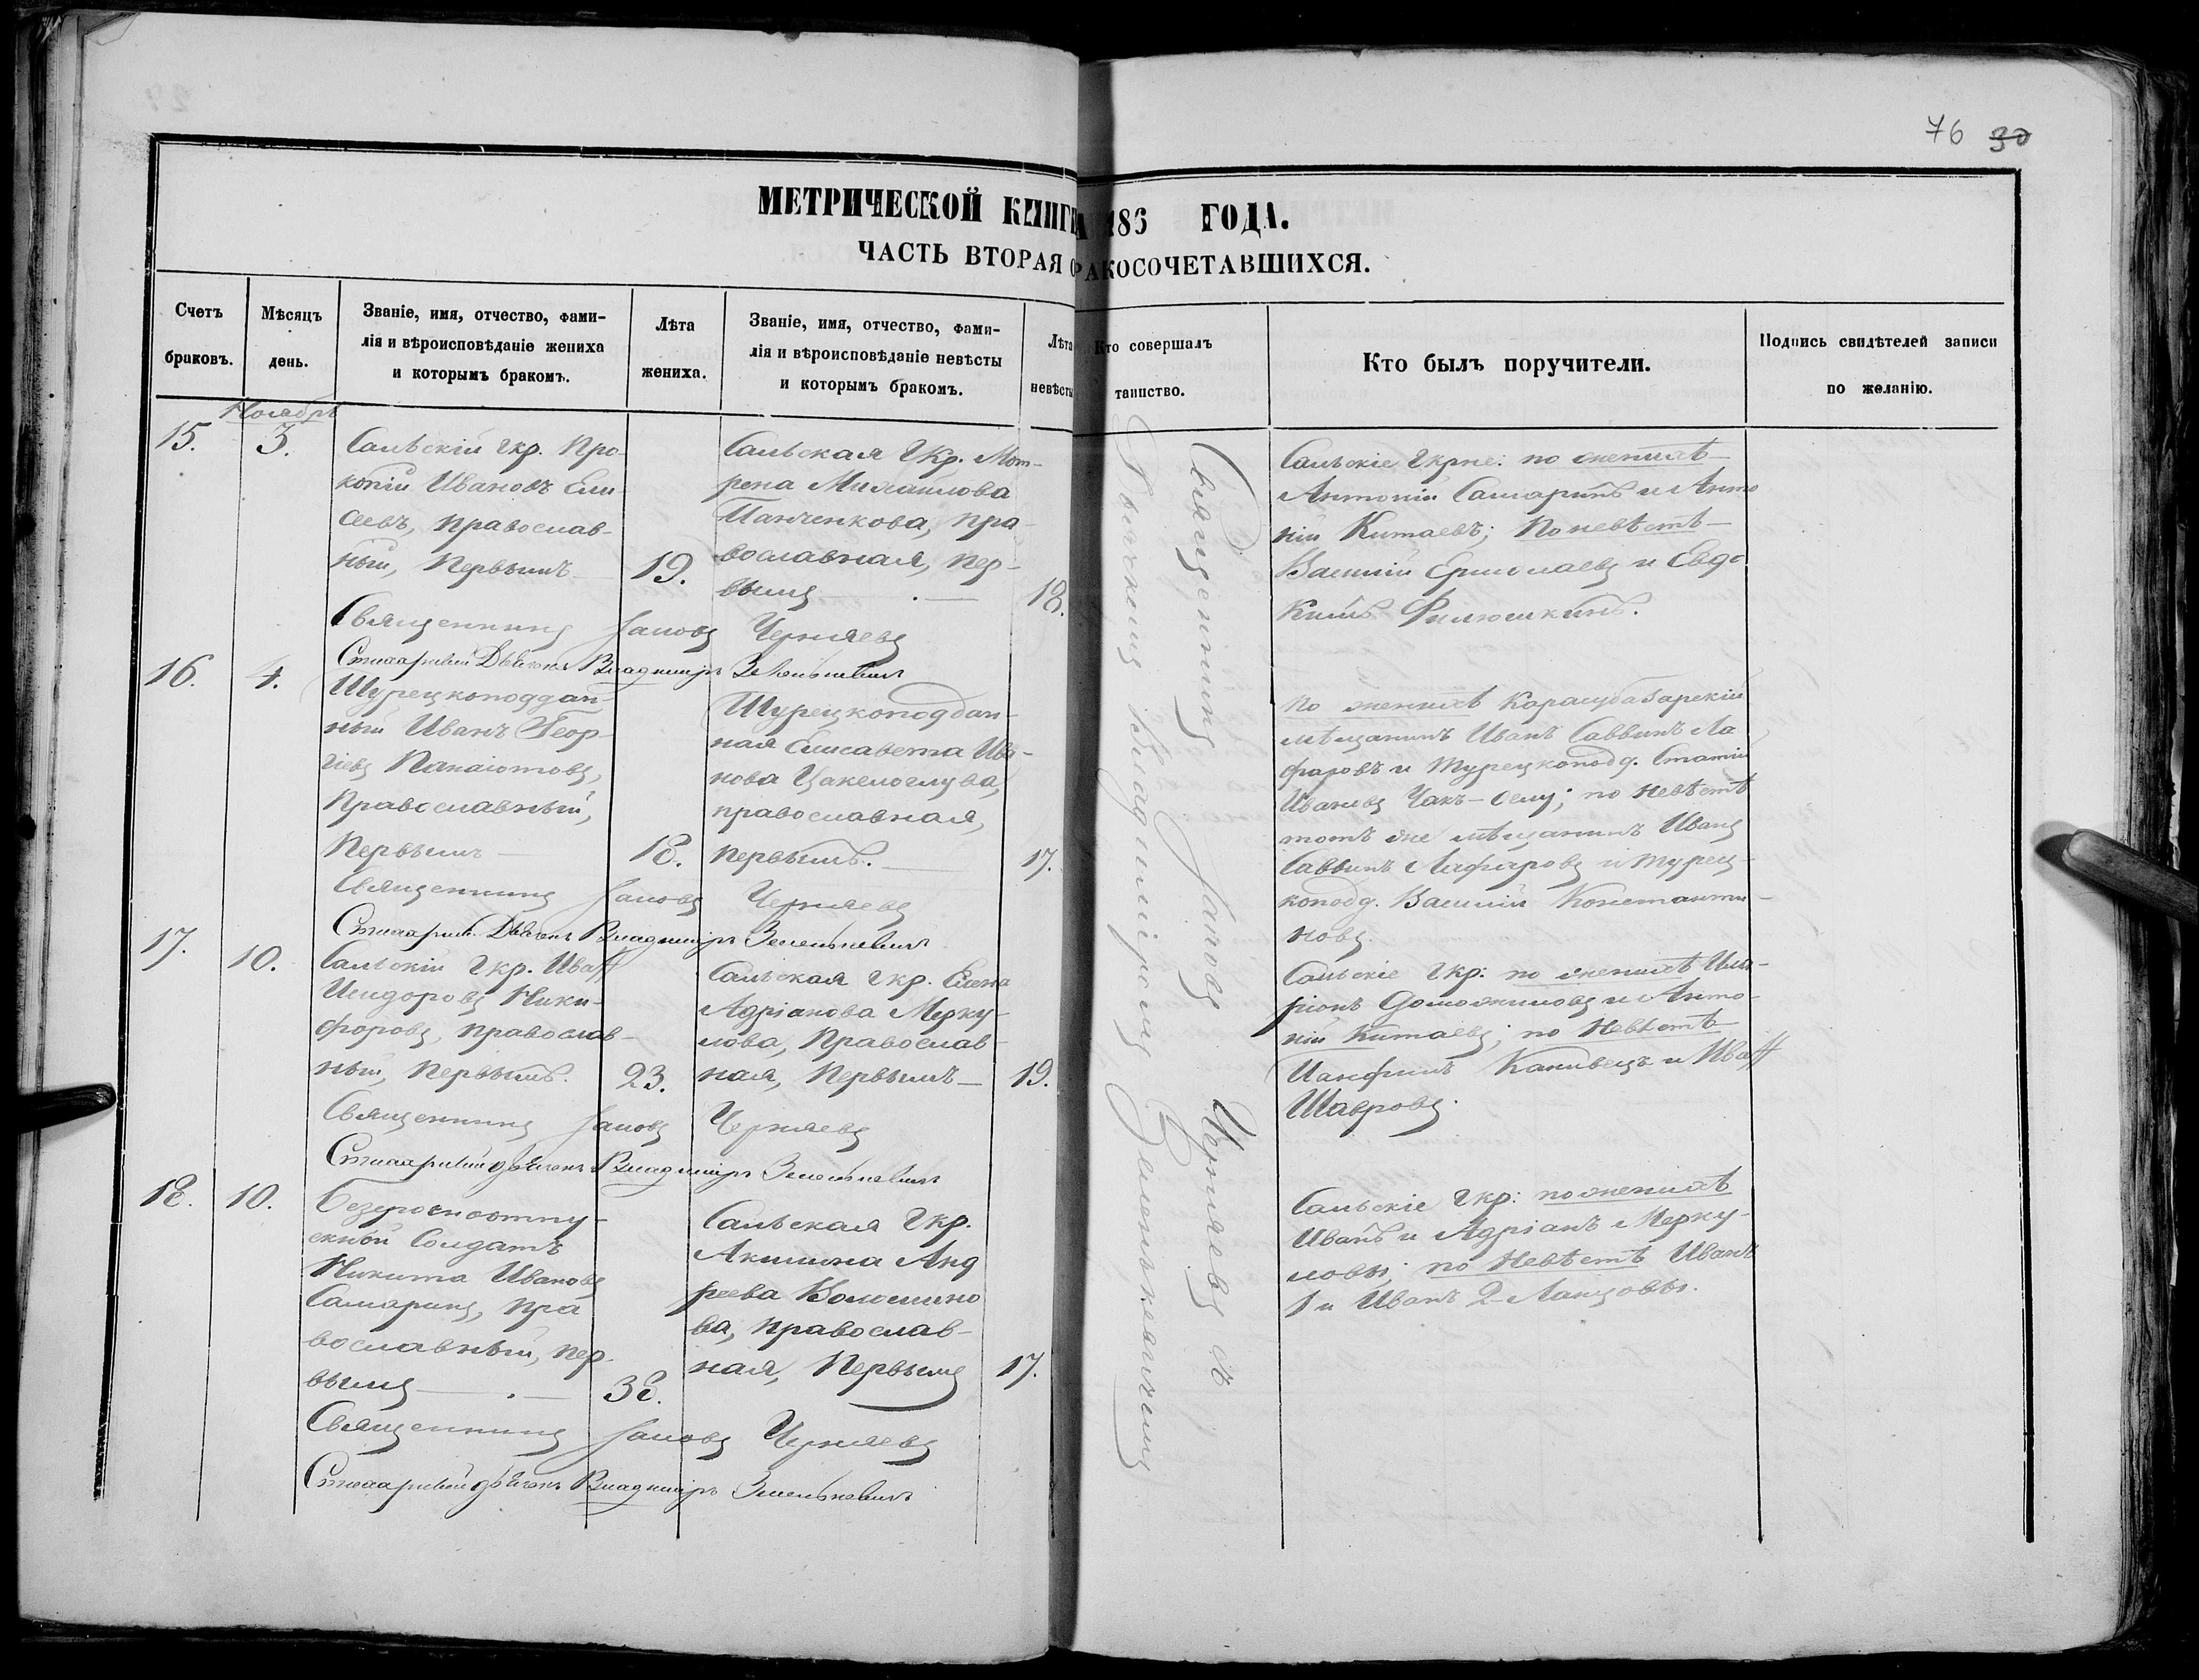 76 30
МЕТРИЧЕСКОЙ КНИГИ 186 ГОДА.
ЧАСТЬ ВТОРАЯ О БРАКОСОЧЕТАВШИХСЯ.
Счетъ браковъ.
Мѣсяцъ день.
Званіе, имя, отчество, фами-
лія и вѣроисповѣданіе жениха
и которымъ бракомъ.
Лѣта жениха.
Званіе, имя, отчество, фами-
лія и вѣроисповѣданіе невѣсты
и которымъ бракомъ.
Лѣта невѣсты
Кто совершалъ таинство.
Кто былъ поручители.
Подпись свидѣтелей записи
по желанію.
Ноябрь
15. 3.
Сальскій Гкр. Про
копій Ивановъ Ели
сеевъ, православ-
ный, Первымъ
19.
Сальская Гкр. Мот-
рена Михаилова
Панченкова, пра-
вославная, пер-
вымъ
18.
Сальскіе Гкрне: по женихѣ
Антоній Самаринъ и Анто
ній Китаевъ; По невѣстѣ
Василій Ермолаевъ и Евдо
кимъ Филюшкинъ.
Священникъ Іаковъ Черняевъ
Стихарный Дьячекъ Владимиръ Зеленкевичъ
16. 4.
Турецкоподдан-
ный Иванъ Геор-
гіевъ Панаіотовъ,
Православный,
Первымъ
18.
Турецкоподдан-
ная Елисавета Ива-
нова
православная,
первымъ.
17.
По женихѣ Карасубазарскій
мѣщанинъ Иванъ Саввинъ Ла
фаровъ и Турецкоподд. Статій
Ивановъ по невѣстѣ
тотъ же мѣщанинъ Иванъ
Саввинъ Лафаровъ и турец-
коподд. Василій Константи-
новъ.
Священникъ Іаковъ Черняевъ
Стихарный Дьячекъ Владимиръ Зеленкевичъ
17. 10.
Сальскій Гкр. Иванъ
Исидоровъ Ники-
форовъ, православ-
ный, Первымъ.
23.
Сальская Гкр. Елена
Адріанова Мерку-
лова, Православ-
ная, Первымъ
19.
Сальскіе Гкр: по женихѣ Ила-
ріонъ Доможиловъ и Анто-
ній Китаевъ; по невѣстѣ
Панфилъ Канивецъ и Иванъ
Шавровъ.
Священникъ Іаковъ Черняевъ
Стихарный дьячекъ Владимиръ Зеленкевичъ
18. 10.
Безсрочноотпу-
скной Солдатъ
Никита Ивановъ
Самаринъ, пра
вославный, пер-
вымъ
38.
Сальская Гкр.
Акилина Анд
реева Волошино
ва, православ-
ная, Первымъ
17.
Сальскіе Гкр: по женихѣ
Иванъ и Адріанъ Мерку-
ловы; по невѣстѣ Иванъ
1 и Иванъ 2 Ланцовы.
Священникъ Іаковъ Черняевъ
Стихарный дьячекъ Владимиръ Зеленкевичъ
Священникъ Іаковъ Черняевъ съ
Дьячкомъ Владиміромъ Зеленкевичемъ